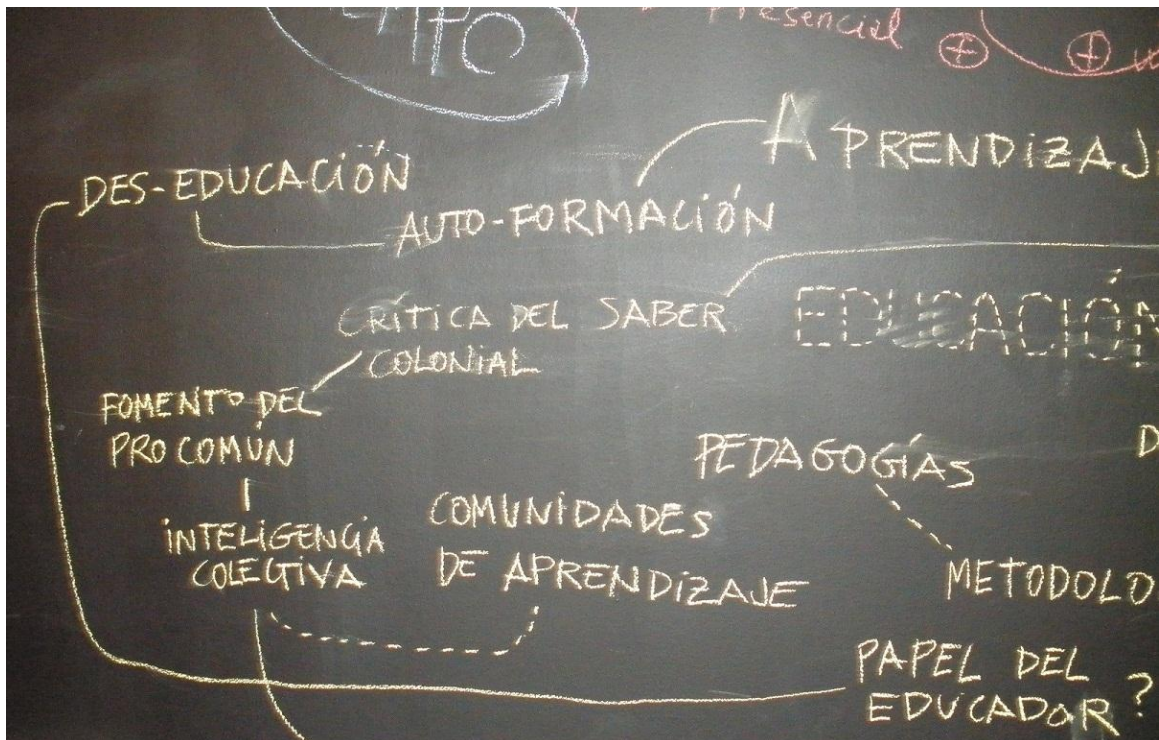 presencial
DES-EDUCACIÓN
APRENDIZAJ
AUTO-FORMACIÓN
CRÍTICA DEL SABER
COLONIAL
EDUCACIÓN
FOMENTO DEL
PROCOMÚN
PEDAGOGÍAS
D
INTELIGENCIA
COLECTIVA
COMUNIDADES
DE APRENDIZAJE
METODOLO
PAPEL DEL
EDUCADOR?